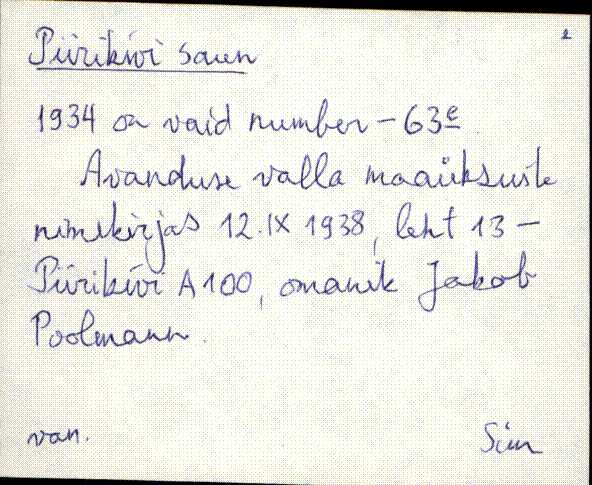 2
Piirikivi saun
1934 on vaid number – 63e
Avanduse valla maaüksuste
nimekirjas 12.IX 1938, leht 13 –
Piirikivi A100, omanik Jakob
Poolmann.
van. Sim